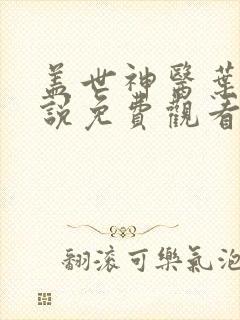 盖世神醫葉
說免費觀看
翻滚可樂氣泡